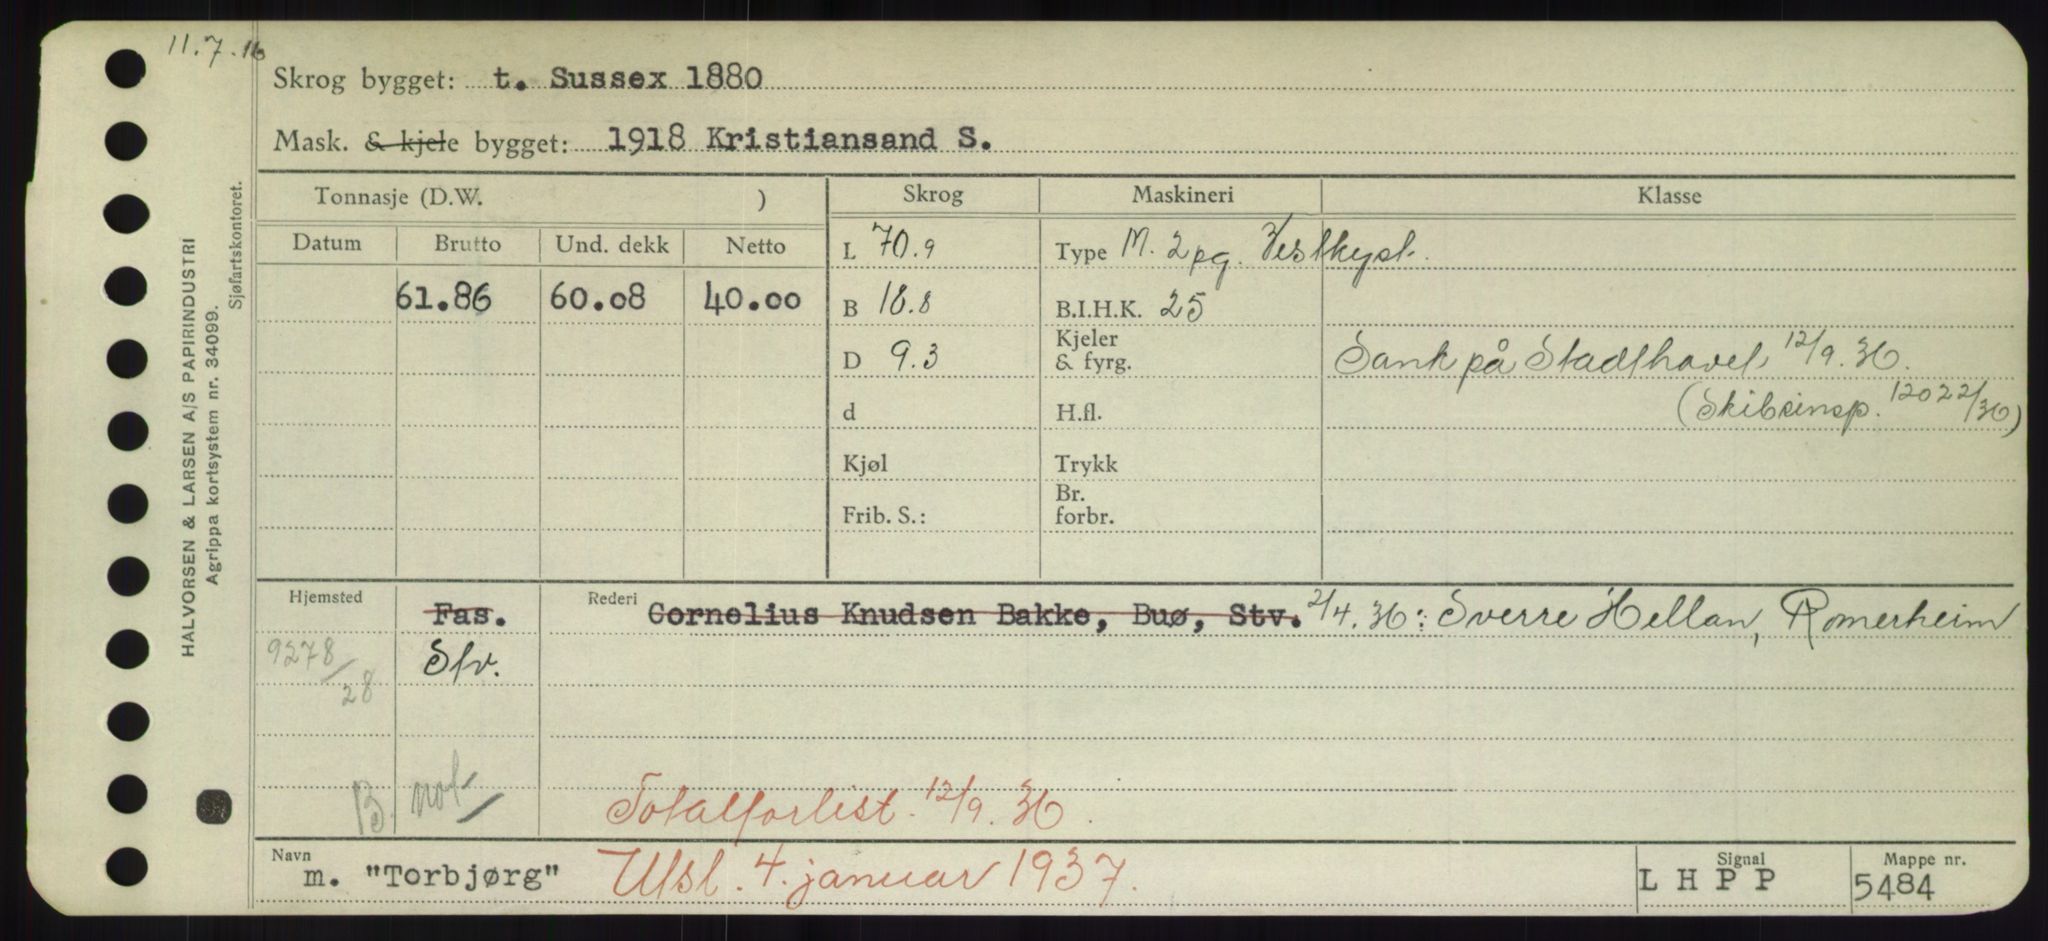 11.7.16
Skrog bygget: t. Sussex 1880
Mask. & kjele bygget: 1918 Kristiansand S.
Tonnasje (D.W. ) Skrog Maskineri Klasse
Datum Brutto Und. dekk Netto L 70.9 Type M. 2pg. Vestkyst.
61.86 60.08 40.00 B 18.8 B.I.H.K. 25
D 9.3 Kjeler & fyrg. Sank på Stadthavet 12/9.36.
d H.fl. (Skibsinsp. 12022/36)
Kjøl Trykk
Frib. S.: Br. forbr.
Hjemsted Fas. Rederi Cornelius Knudsen Bakke, Buø, Stv. 2/4.36: Sverre Hellan, Romerheim
9278/28 Sfv.
B. not
Totalforlist. 12/9.36.
Navn m. "Torbjørg" Utsl. 4. januar 1937. Signal L H P P Mappe nr. 5484
HALVORSEN & LARSEN A/S PAPIRINDUSTRI
Agrippa kortsystem nr. 34099.
Sjøfartskontoret.